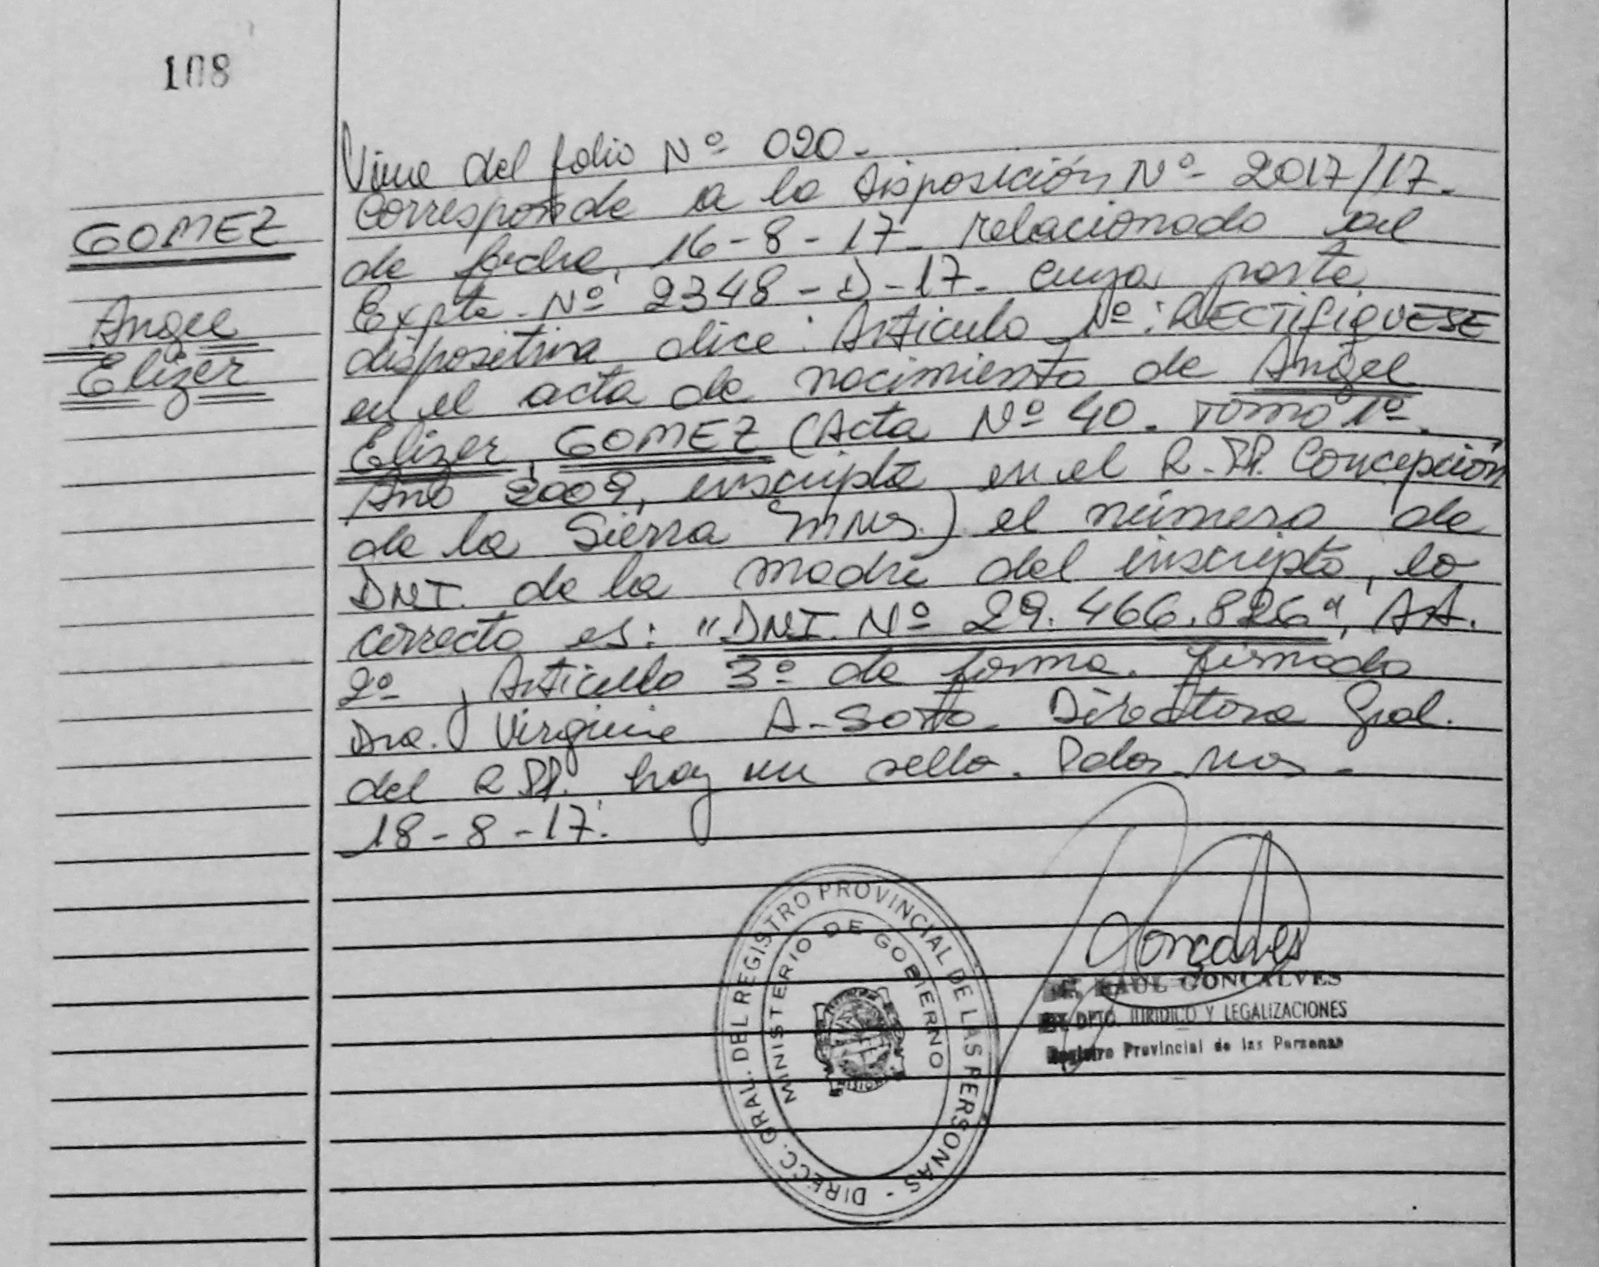 108
GOMEZ
Angel
Elizer
Viene del folio Nº 020.-
Corresponde a la Disposición Nº 2017/17.
de fecha, 16-8-17. relacionado al
Expte. Nº 2348-D-17. cuya parte
dispositiva dice: Artículo 1º: RECTIFIQUESE
en el acta de nacimiento de Angel
Elizer, GOMEZ (Acta Nº 40. Tomo 1º.
Año 2009, inscripta en el R.PP. Concepción
de la Sierra Mnes.) el número de
DNI. de la madre del inscripto, lo
correcto es: "DNI. Nº 29.466.826", AA.
2º, Artículo 3º de forma. Firmado
Dra. Virginia A. Soto. Directora Gral.
del R.PP. hay un sello. Pdas. Mnes.-
18-8-17.
DIRECC. GRAL. DEL REGISTRO PROVINCIAL DE LAS PERSONAS -
MINISTERIO DE GOBIERNO
MISIONES
Goncalves
RAUL GONCALVES
DPTO. JURIDICO Y LEGALIZACIONES
Registro Provincial de las Personas